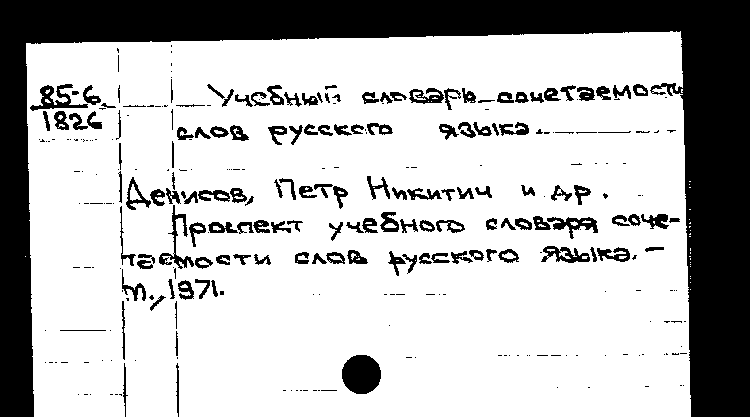 85-6
1826
Учебный словарь сочетаемости
слов русского языка.
Денисов, Петр Никитич и др.
Проспект учебного словаря соче-
таемости слов русского языка. -
М., 1971.